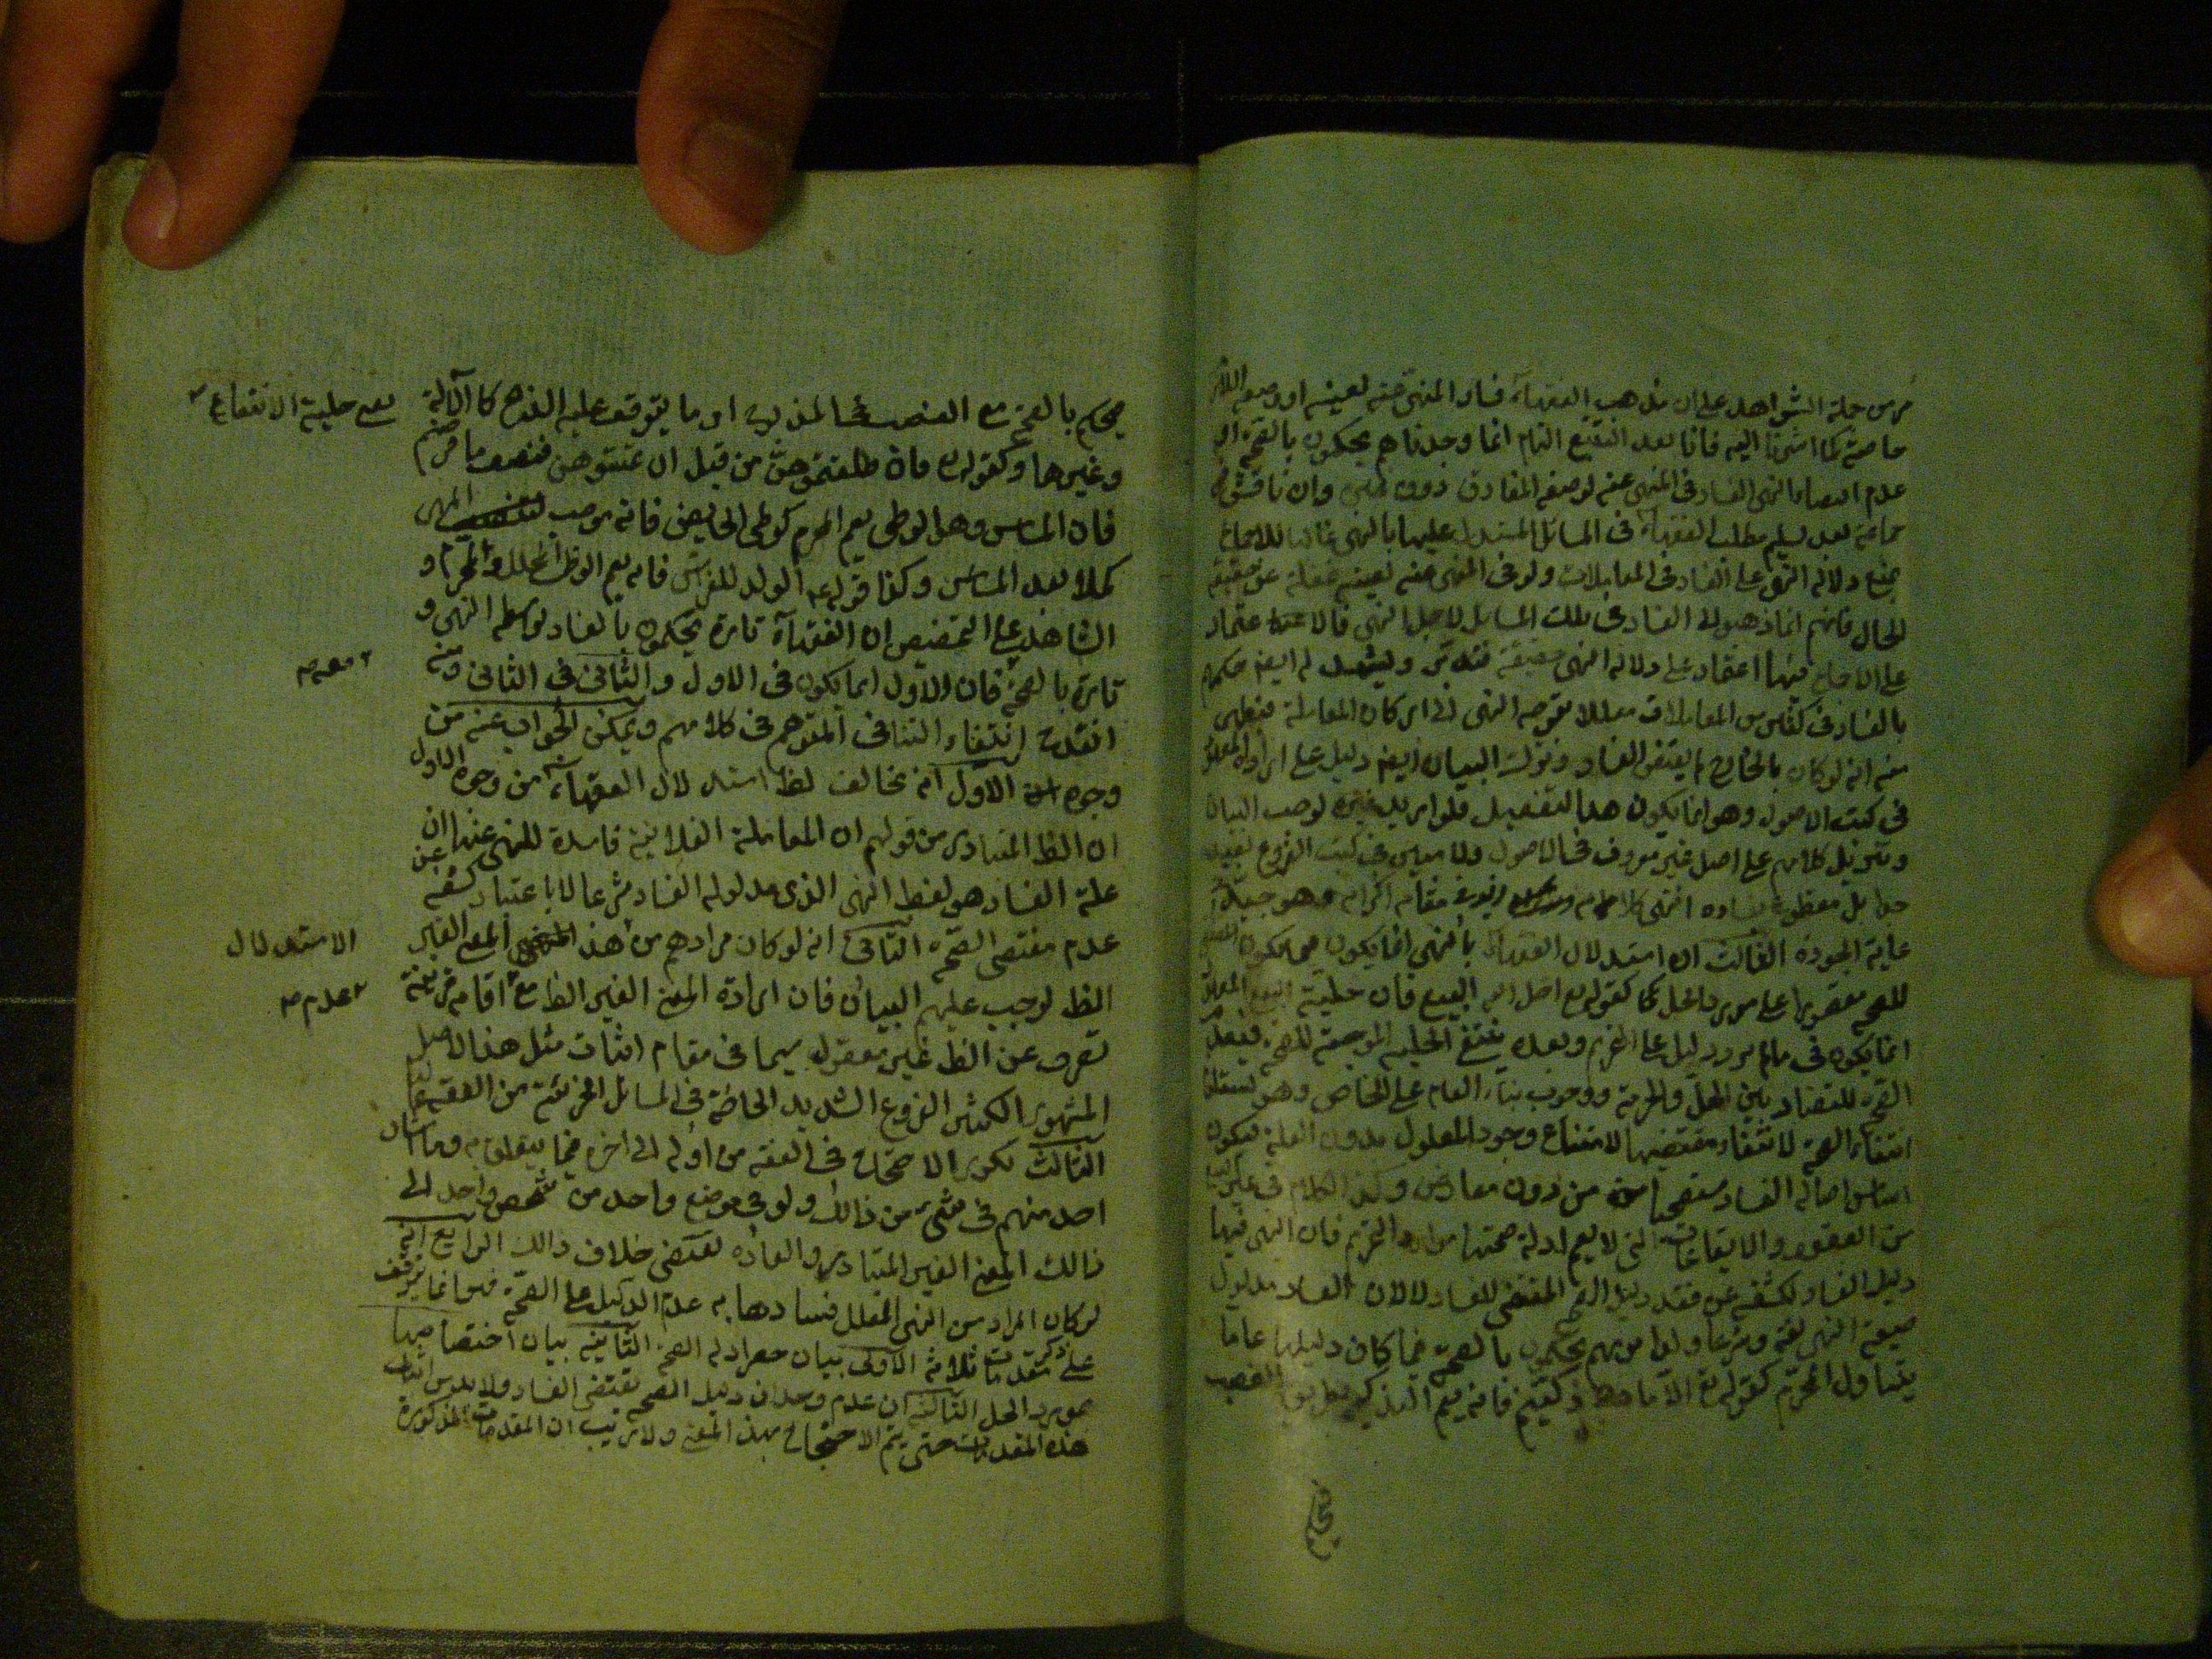 من جملة الشواهد على ان مذهب الفقهاء فساد المنهى عنه لعينه او وصفه اللازم
خاصة كما اشرنا اليه فانا بعد التتبع التام انما وجدناهم يحكمون بالصحة
عدم اقتضاء النهى الفساد فى المنهى عنه لوصفه المفارق دون وان ناقش
جماعة بعد تسليم مطلب الفقهاء فى المسائل المستدل عليها بالنهى للاجماع
بمنع دلالة النهى على الفساد فى المعاملات ولو فى المنهى عنه لعينه غفلة عن حقيقة
الحال فانهم انما ذهبوا الى الفساد فى تلك المسائل لاجل النهى فالاعتماد
على الاجماع فيها اعتماد على دلالة النهى حقيقة فتدبر ويشهد له ايضا حكمهم
بالفساد فى كثير من المعاملات معللا بتوجه النهى الى اركان المعاملة فيظهر
منه انه لو كان بالخارج لم يقتض الفساد وترك البيان ايضا دليل على ارادة
فى كتب الاصول وهو انما يكون هذا التفصيل فلو اريد غيره لوجب البيان
وتنزيل كلامهم على اصل غير معروف فى الاصول ولا مبين فى كتب الفروع بعيد
جدا بل مقطوع بفساده انتهى كلامه مقامه وهو جيد
غاية الجودة الثالث ان استدلال الفقهاء بالنهى انما يكون فيما يكون
للصحة مقصورا على مورد الحل كما كقوله تع احل الله البيع فان حلية البيع
انما يكون فى مالم يرد دليل على التحريم وبعده ينتفى الحلية الموجبة للصحة
الصحة للتضاد بين الحل والحرمة ووجوب بناء العام على الخاص وهو
انتفاء الصحة لانتفاء مقتضيها لامتناع وجود المعلول بدون العلة فيكون
اصالة الفساد من دون معارض وكذا الكلام فى غير البيع
من العقود والايقاعات التى لا يعم ادلة صحتها موارد التحريم فان النهى فيها
دليل الفساد لكشفه عن فقد دليل الصحة المقتضى للفساد لا لان الفساد مدلول
صيغة النهى لغة وشرعا ولذا تريهم يحكمون بالصحة فيما كان دليلها عاما
يتناول المحرم كقوله تع الا ما ذكيتم فانه يعم التذكية بطريق الغصب
يحكم بالصحة مع الغصب فى المذبوح او ما يتوقف عليه الذبح كالآلة
بعد حلية الانتفاع
وغيرها وكقوله تع فان طلقتموهن من قبل ان تمسوهن فنصف ما فرضتم
فان المساس وهو الوطى يعم المحرم كوطى الحايض فانه يوجب المهر
كملا بعد المساس وكذا قوله ع الولد للفراش فانه يعم الوطى المحلل والمحرم و
الشاهد على التخصيص ان الفقهاء تارة يحكمون بالفساد بواسطة النهى و
معه
تارة بالصحة فان الاول انما يكون فى الاول والثانى فى الثانى ومنه
انقدح انتفاء التنافى المتوهم فى كلامهم ويمكن الجواب عنه من
وجوه الاول انه مخالف لظ استدلال الفقهاء من وجوه الاول
ان الظ المتبادر من قولهم ان المعاملة الفلانية فاسدة للنهى عنها ان
علة الفساد هو لفظ النهى الذى مدلوله الفساد شرعا لا باعتبار كشفه عن
عدم مقتضى الصحة الثانى انه لو كان مرادهم من هذا المعنى الغير
الاستدلال
الظ لوجب عليهم البيان فان ارادة المعنى الغير الظ مع اقامة قرينة
عدم
تصرف عن الظ غير معقول سيما فى مقام اثبات مثل هذا الاصل
المشهور الكثير الفروع الشديد الحاجة فى المسائل الجزئية من الفقه
الثالث تكرر الاحتجاج فى الفقه من اوله الى اخره فيما يتعلق به وما اشار
احد منهم فى شئ من ذلك ولو فى موضع واحد من شخص واحد الى
ذلك المعنى الغير المتبادر والعادة تقتضى خلاف ذلك الرابع انه
لو كان المراد من النهى المعلل فسادها به عدم الدليل على الصحة فهو انما يتوقف
على ذكر مقدمات ثلاثة الاولى بيان حصر ادلة الصحة الثانية بيان اختصاصها
بمورد الحل الثالثة ان عدم وجدان دليل الصحة يقتضى الفساد ولا بد من اثبات
هذه المقدمات حتى يتم الاحتجاج بهذا المعنى ولا ريب ان المقدمات المذكورة